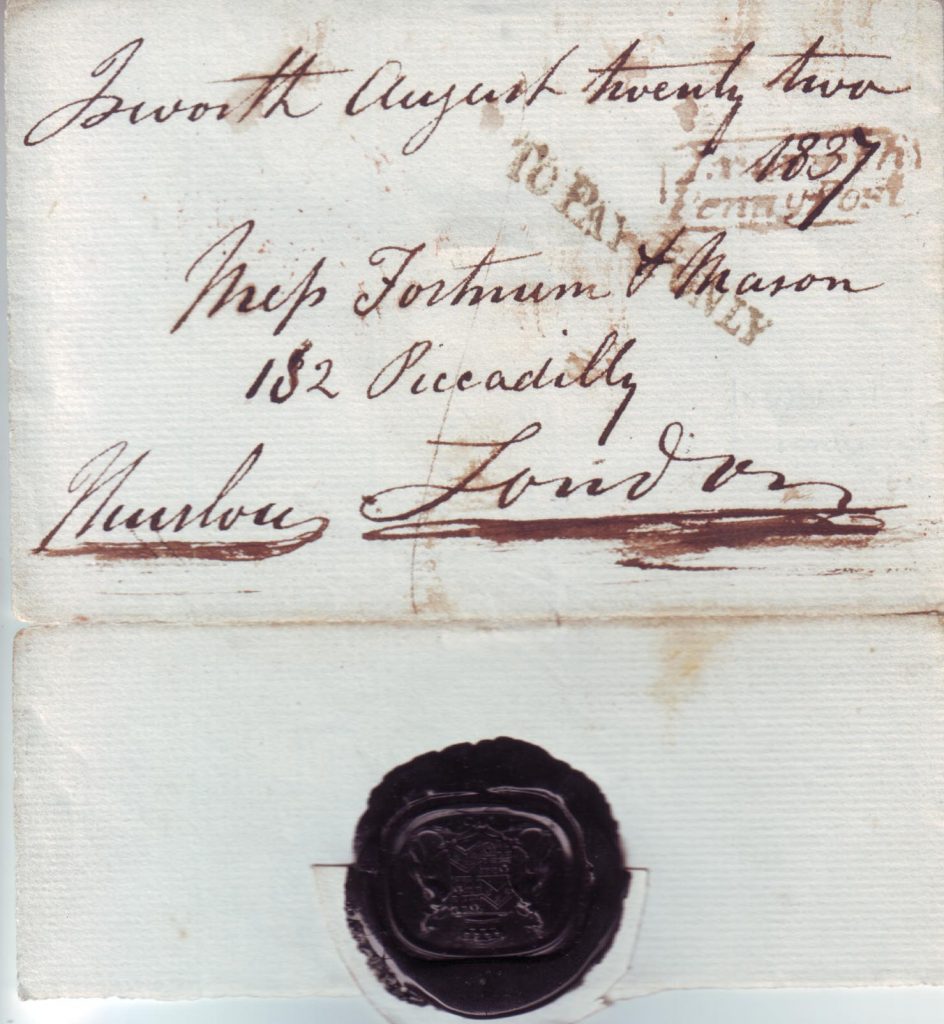 Ixworth August twenty two
1837
Penny Post
TO PAY ONLY
Mess Fortnum & Mason
182 Piccadilly
London